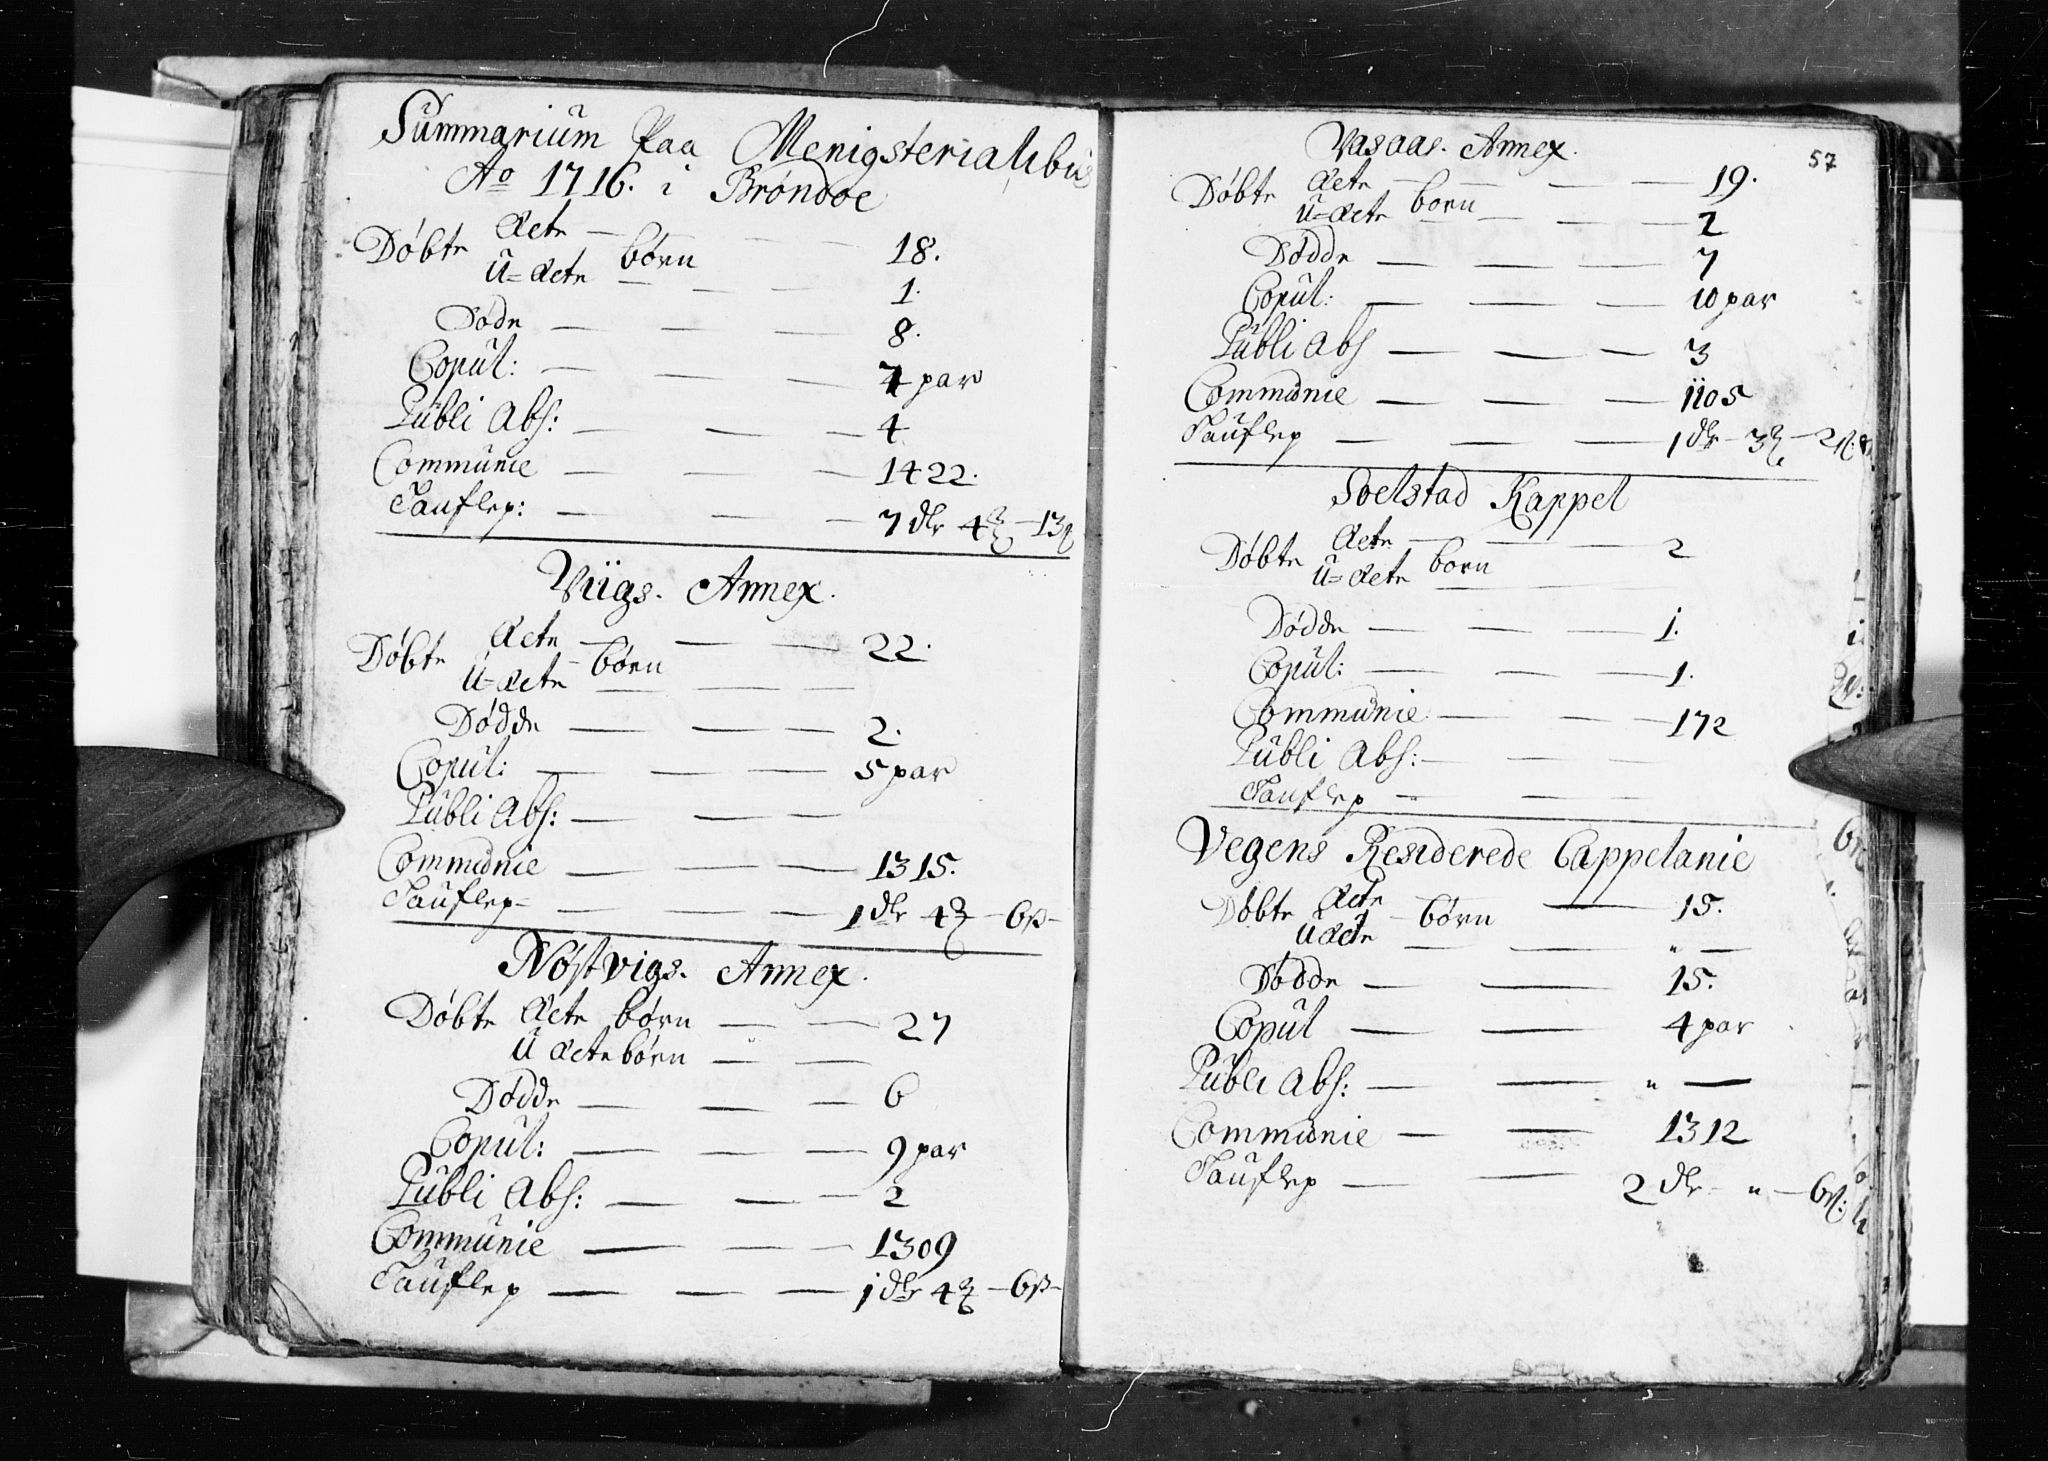 Summarium Paa Menigsterialibus
Ao 1716. i Brøndøe
Døbte Ecte børn 18.
U=Ecte 1.
Døde 8.
Copul: 7 par
Publi Abs: 4
Communie 1422.
Tauflep: 7 dlr 4 13
Viigs. Annex.
Døbte Ecte børn 22.
U=Ecte
Dødde 2.
Copul: 5 par
Publi Abs:
Communie 1315.
Tauflep- 1 dlr 4 6ß
Nøstvigs. Annex.
Døbte Ecte børn 27
U Ecte børn
Dødde 6
Copul: 9 par
Publi Abs: 2
Communie 1309
Tauflep 1 dlr 4 6ß
57
Vasaas. Annex.
Døbte Ecte born 19.
U=Ecte 2
Dødde 7
Copul: 10 par
Publi Abs 3
Communie 1105
Tauflep 1 dlr 3
Soelstad Kappel
Døbte Ecte born 2
U=Ecte
Dødde 1.
Copul: 1.
Communie 172
Publi Abs:
Tauflep
Vegens Residerede Cappelanie
Døbte Ecte børn 15.
U Ecte "
Dødde 15.
Copul 4 par
Publi Abs: "
Communie 1312
Tauflep 2 dlr " 6ß: